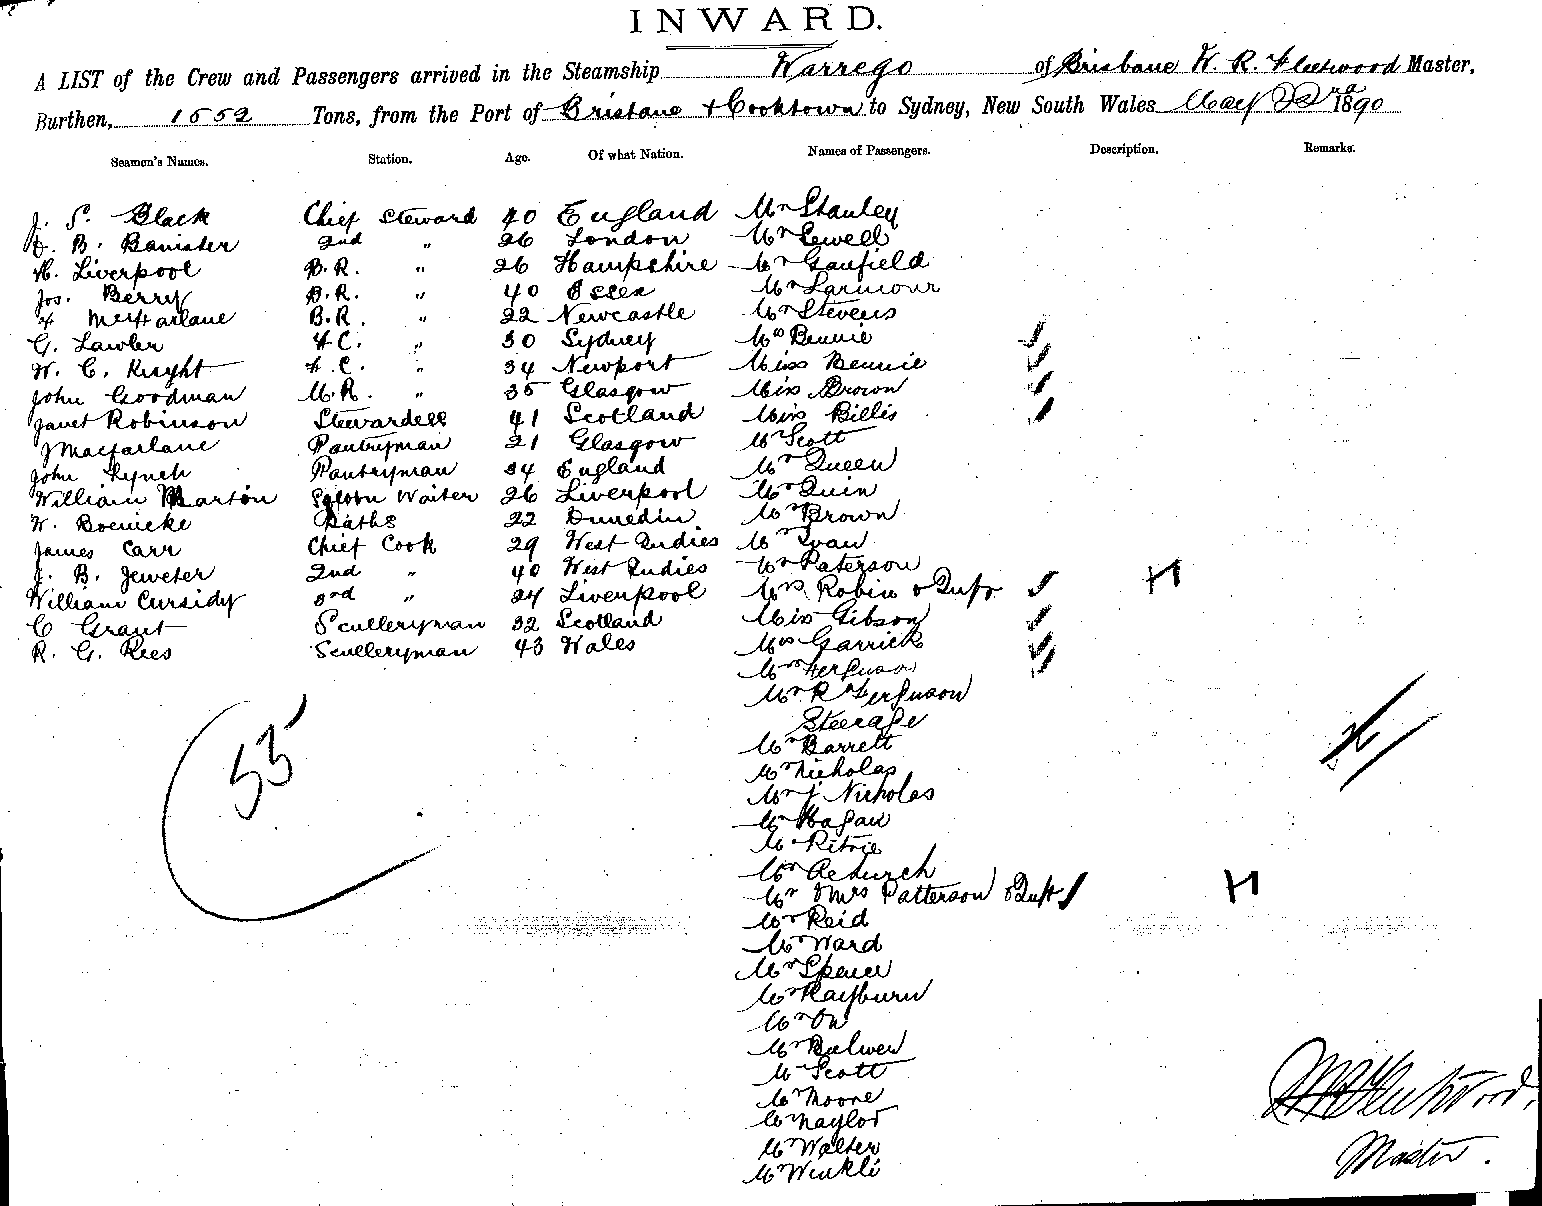 INWARD.
A LIST of the Crew and Passengers arrived in the Steamship Warrego of Brisbane W. R. Fleetwood Master,
Burthen, 1552 Tons, from the Port of Brisbane & Cooktown to Sydney, New South Wales May 22nd 1890
Seamen's Names. Station. Age. Of what Nation. Names of Passengers. Description. Remarks.
J. S. Black Chief Steward 40 England Mr Stanley
B. Banister 2nd " 26 London Mr Sewell
H. Liverpool B.R. " 26 Hampshire Mr Garfield
Jos. Berry B.R. " 40 Essex Mr Larmour
McFarlane B.R. " 22 Newcastle Mr Stevens
G. Lawler F.C. " 30 Sydney Mrs Bennie
W. C. Knight F.C. " 34 Newport Miss Bennie
John Goodman M.R. " 35 Glasgow Miss Brown
Janet Robinson Stewardess 41 Scotland Miss Billis
J Macfarlane Pantryman 21 Glasgow Mr Scott
John Lynch Pantryman 34 England Mr Queen
William Marton Saloon Waiter 26 Liverpool Mr Quin
W. Boenicke Baths 22 Dunedin Mr Brown
James Carr Chief Cook 29 West Indies Mr Ivan
J. B. Jeweter 2nd " 40 West Indies Mr Paterson
William Cursidy 3rd " 24 Liverpool Mrs Robin & Inft H
C Grant Sculleryman 32 Scotland Miss Gibson
R. G. Rees Sculleryman 43 Wales Mrs Garrick
Mrs Ferguson
Mr R Ferguson
Steerage
55
Mr Barrett
Mr Nicholas
Mr J Nicholas
Mr Hagan
Mr Ritrie
Mr Achurch
Mr & Mrs Patterson & Inft H
Mr Reid
Mr Ward
Mr Spencer
Mr Rayburn
Mr On
Mr Bulwer
Mr Scott
Mr Moore
Mr Naylor
Mr Walter
Mr Winkli
W R Fleetwood,
Master.